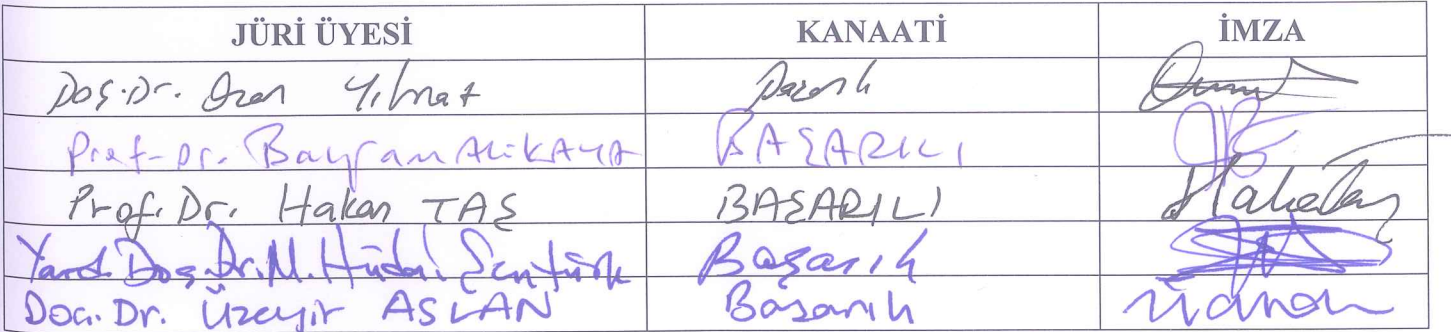 JÜRİ ÜYESİ KANAATİ İMZA
Doç. Dr. Ozan Yılmaz Başarılı
Prof. Dr. Bayram ALİ KAYA BAŞARILI
Prof. Dr. Hakan TAŞ BAŞARILI
Yard. Doç. Dr. M. Hüdai Şentürk Başarılı
Doç. Dr. Üzeyir ASLAN Başarılı